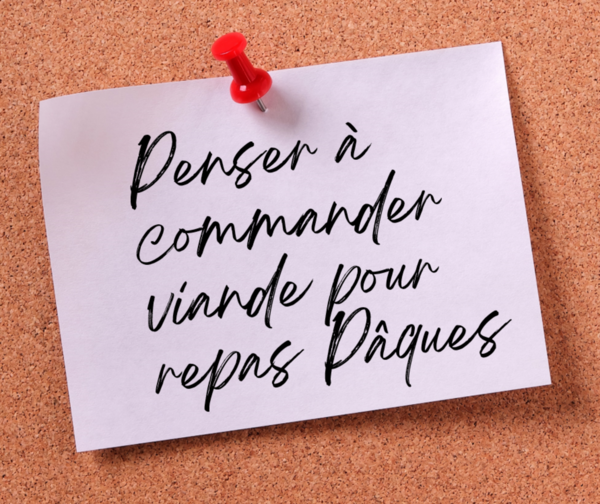 Penser à
commander
viande pour
repas Pâques